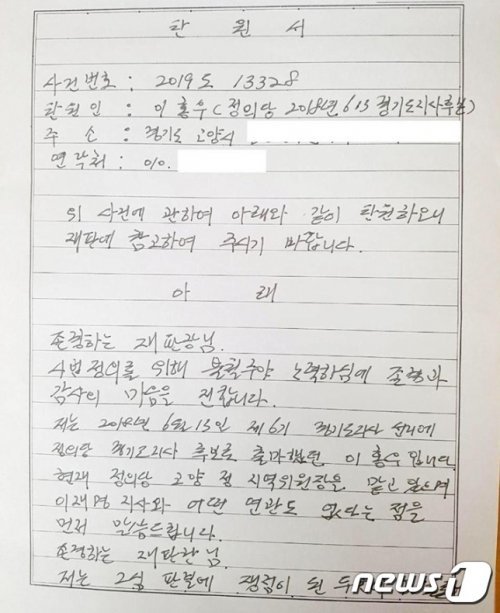 탄 원 서
사건번호 : 2019도 13328
탄원인 : 이홍우 (정의당 2018년 6.13 경기도지사후보)
주 소 : 경기도 고양시
연락처 : 010.
위 사건에 관하여 아래와 같이 탄원하오니
재판에 참고하여 주시기 바랍니다.
아 래
존경하는 재판장님.
사법정의를 위해 불철주야 노력하심에 존경과
감사의 마음을 전합니다.
저는 2018년 6월 13일 제6기 경기도지사 선거에
정의당 경기도지사 후보로 출마했던 이홍우입니다.
현재 정의당 고양 정 지역위원장을 맡고 있으며
이재명 지사와 어떤 연관도 없다는 점을
먼저 말씀드립니다.
존경하는 재판장님.
저는 2심 판결에 쟁점이 된 두
news1